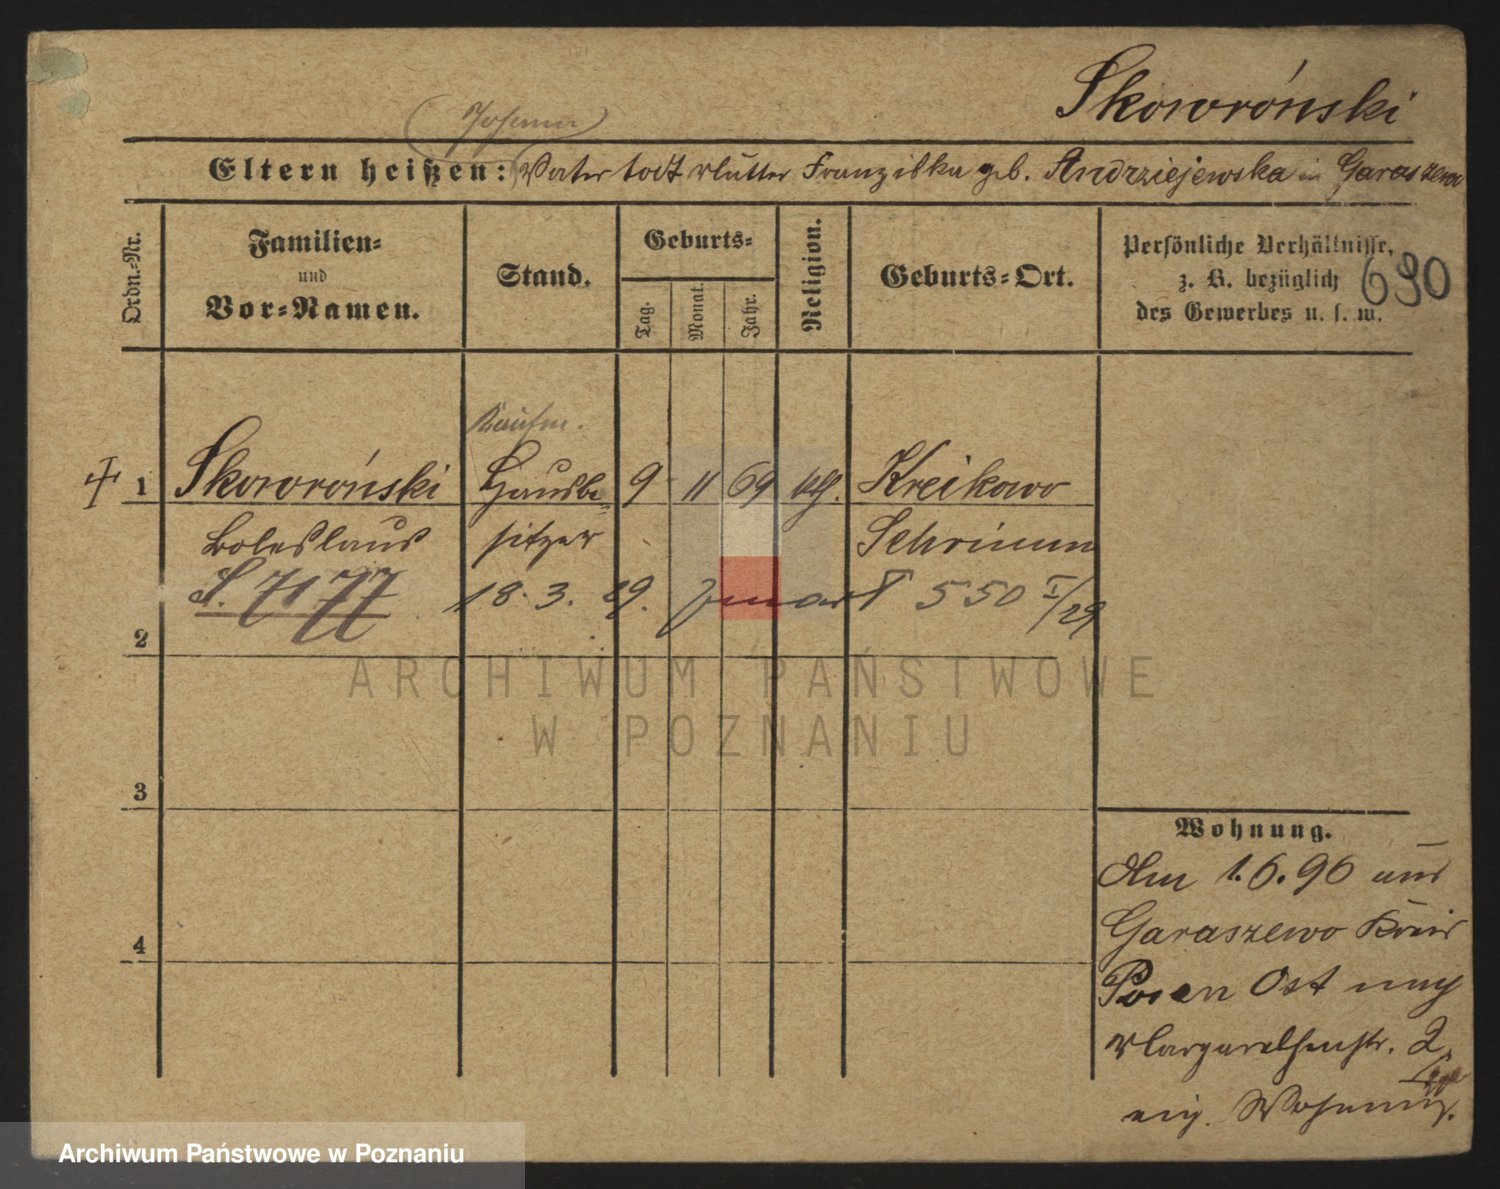 Skowroński
(Johann)
Eltern heißen: Vater todt Mutter Franziska geb. Andrziejewska in Garaszewo
Ordn.-Nr.
Familien-
und
Vor-Namen.
Stand.
Geburts-
Tag.
Monat.
Jahr.
Religion.
Geburts-Ort.
Persönliche Verhältnisse,
z. B. bezüglich
des Gewerbes u. s. w.
690
Kaufm.
1 Skowroński Hausbe- 9 11 69 Kreikowo
Boleslaus sitzer Schrimm
S. 7177 18. 3. 29. 550 I/29
2
3
4
Wohnung.
Am 1.6.96 aus
Garaszewo Kreis
Posen Ost nach
Margarethenstr. 2
eig. Wohnung.
ARCHIWUM PAŃSTWOWE
W POZNANIU
Archiwum Państwowe w Poznaniu